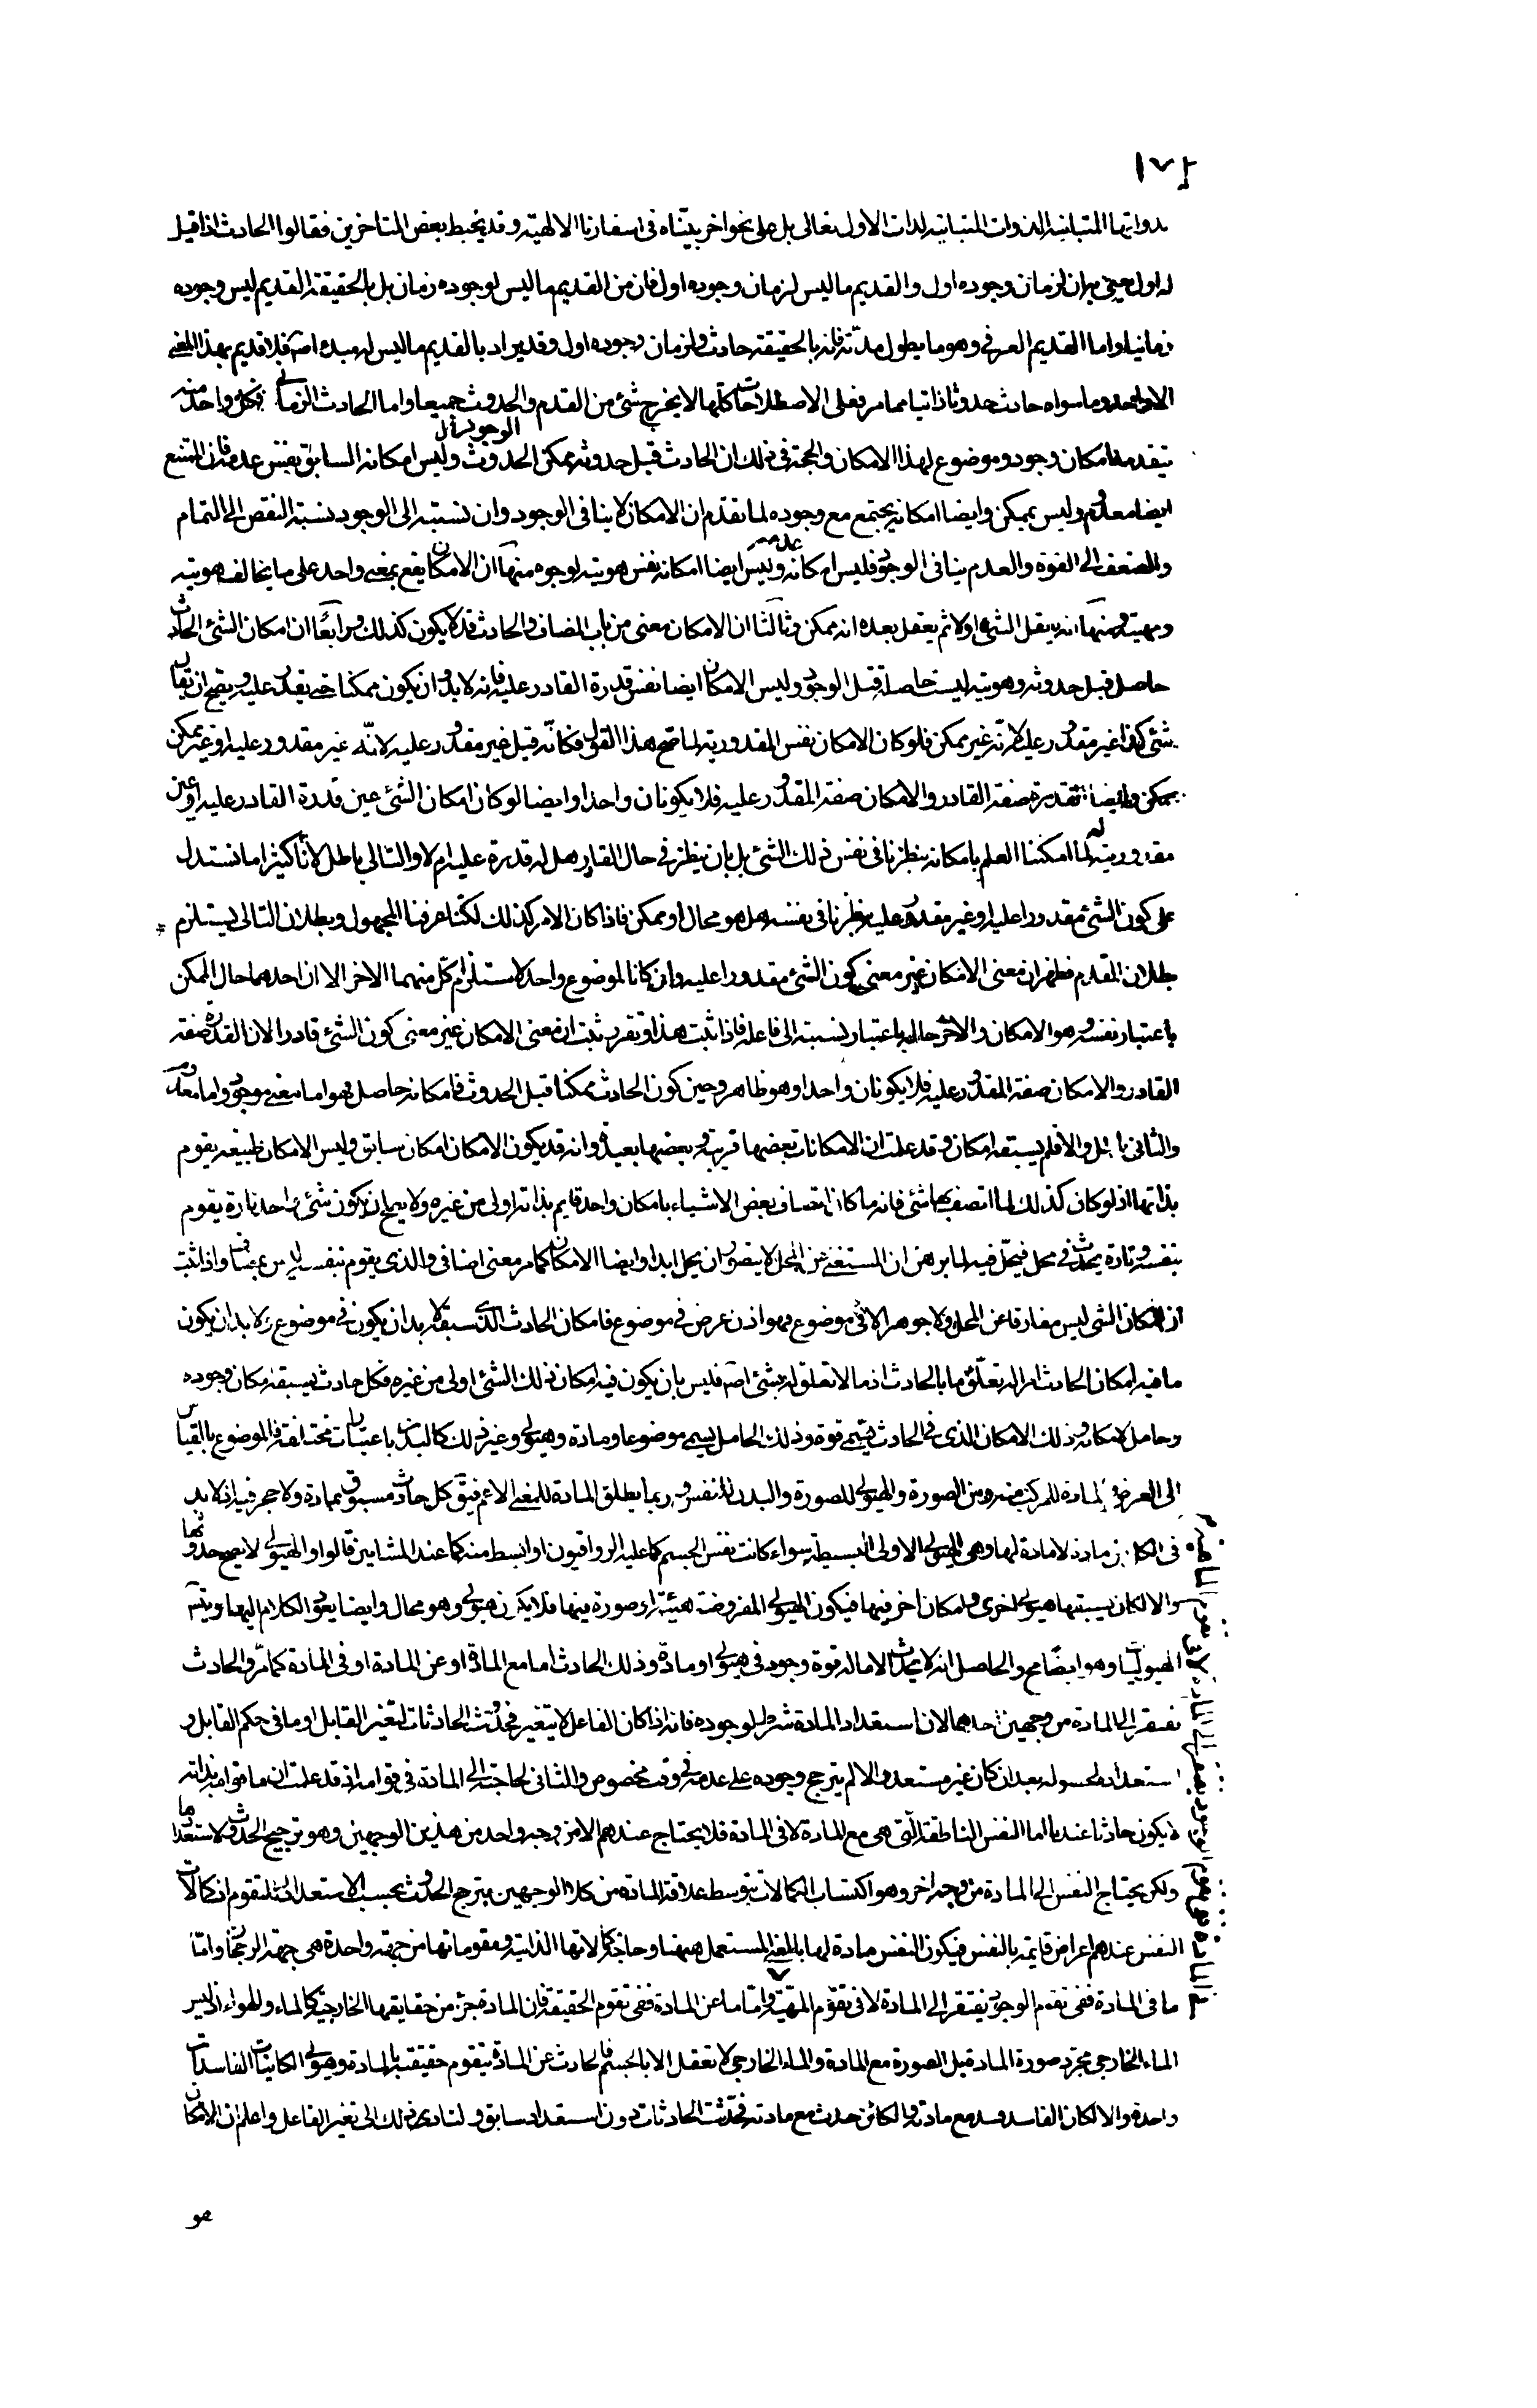 ١٧٤
بذواتها المتباينة الذوات المتباينة لذات الاول تعالى بل على نحو اخر بيناه فى اسفارنا الالهية وقد يخبط بعض المتاخرين فقالوا الحادث اذا قيل
له اول يعنى به ان لزمان وجوده اول والقديم ما ليس لزمان وجوده اول فان من القديم ما ليس لوجوده زمان بل بالحقيقة القديم ليس وجوده
زمانيا واما القديم العرفى وهو ما يطول مدته فانه بالحقيقة حادث ولزمان وجوده اول وقد يراد بالقديم ما ليس له مبدء اصلا فلا قديم بهذا المعنى
الا واحد وما سواه حادث حدوثا ذاتيا مما مر فعلى الاصطلاحات كلها لا يخرج شئ من القدم والحدوث جميعا واما الحادث الزمانى فكل واحد منه
يتقدمه امكان وجود وموضوع لهذا الامكان والحجة فى ذلك ان الحادث قبل حدوثه ممكن الحدوث وليس امكانه السابق نفس عدمه فان الممتنع
ايضا معدوم وليس بممكن وايضا امكانه يجتمع مع وجوده لما تقدم ان الامكان لا ينافى الوجود وان نسبته الى الوجود نسبة النقص الى التمام
والضعف الى القوة والعدم ينافى الوجود فليس امكانه عدمه وليس ايضا امكانه نفس هويته لوجوه منها ان الامكان يقع بمعنى واحد على ما يخالف هويته
ومهيته ومنها انه يعقل الشئ اولا ثم يعقل بعده انه ممكن وثالثا ان الامكان معنى من باب المضاف والحادث قد لا يكون كذلك ورابعا ان امكان الشئ الحادث
حاصل قبل حدوثه وهويته ليست حاصلة قبل الوجود وليس الامكان ايضا نفس قدرة القادر عليه فانه لا بد وان يكون ممكنا حتى يقدر عليه ويصح ان يقال
شئ كذا غير مقدور عليه لانه غير ممكن فلو كان الامكان نفس المقدورية لما صح هذا القول فكانه قيل غير مقدور عليه لانه غير مقدور عليه او غير ممكن
ممكن وايضا القدرة صفة القادر والامكان صفة المقدور عليه فلا يكونان واحدا وايضا لو كان امكان الشئ عين قدرة القادر عليه او عين
مقدوريته له لما امكننا العلم بامكانه بنظرنا فى نفس ذلك الشئ بل بان ينظر فى حال القادر هل له قدرة عليه ام لا والتالى باطل لانا كثيرا ما نستدل
على كون الشئ مقدورا عليه او غير مقدور عليه بنظرنا فى نفسه هل هو محال او ممكن فاذا كان الامر كذلك لكنا عرفنا المجهول وبطلان التالى يستلزم
بطلان المقدم فظهر ان معنى الامكان غير معنى كون الشئ مقدورا عليه وان كانا لموضوع واحد لاستلزام كل منهما الاخر الا ان احدهما حال الممكن
باعتبار نفسه وهو الامكان والاخر حاله باعتبار نسبته الى فاعله فاذا ثبت هذا وتقرر ثبت ان معنى الامكان غير معنى كون الشئ قادرا لان القدرة صفة
القادر والامكان صفة المقدور عليه فلا يكونان واحدا وهو ظاهر وحين كون الحادث ممكنا قبل الحدوث فامكانه حاصل فهو اما معنى موجود واما معدوم
والثانى باطل والا فلم يسبقه امكان وقد علمت ان الامكانات بعضها قريبة وبعضها بعيدة وانه قد يكون الامكان امكان سابق وليس الامكان طبيعة يقوم
بذاتها اذ لو كان كذلك لما اتصف بها شئ فانه ما كان اتصاف بعض الاشياء بامكان واحد قايم بذاته اولى من غيره ولا يصح ان يكون شئ واحد تارة يقوم
بنفسه وتارة يحدث فى محل فيحل فيه لما برهن ان المستغنى عن المحل لا يتصور ان يحل ابدا وايضا الامكان كما مر معنى اضافى والذى يقوم بنفسه ليس عرضا واذا ثبت
ان امكان الشئ ليس مفارقا عن المحل ولا جوهرا لا فى موضوع فهو اذن عرض فى موضوع فامكان الحادث الذى سبقه لا بد ان يكون فى موضوع ولا بد ان يكون
ما فيه امكان الحادث امرا له تعلق ما بالحادث اذ ما لا تعلق له بشئ اصلا فليس بان يكون فيه امكان ذلك الشئ اولى من غيره فكل حادث يسبقه امكان وجوده
وحامل لامكانه وذلك الامكان الذى فى الحادث يسمى قوة وذلك الحامل يسمى موضوعا ومادة وهيولى وغير ذلك كالبدن باعتبارات مختلفة فالموضوع بالقياس
الى العرض والمادة للمركب منه ومن الصورة والهيولى للصورة والبدن للنفس وربما يطلق المادة للمعنى الاعم فيق كل حادث مسبوق بمادة ولا حجر فيه اذ لا بد
فى الكل من مادة لا مادة لها وهى الهيولى الاولى البسيطة سواء كانت نفس الجسم كما عليه الرواقيون او ابسط منه كما عند المشايين قالوا والهيولى لا يصح حدوثها
والا لكان يسبقها هيولى اخرى وامكان اخر فيها فيكون الهيولى المفروضة هيئة او صورة فيها فلا يكون هيولى وهو محال وايضا يعود الكلام اليها ويتسلسل
الهيوليات وهو ايضا مح والحاصل انه لا يحدث الا ما له قوة وجود فى هيولى او مادة وذلك الحادث اما مع المادة او عن المادة او فى المادة كما مر والحادث
يفتقر الى المادة من وجهين احدهما لان استعداد المادة شرط لوجوده فانه اذا كان الفاعل لا يتغير فحدوث الحادثات لتغير القابل او ما فى حكم القابل و
استعداده لحصوله بعد ان كان غير مستعد والا لم يترجح وجوده على عدمه فى وقت مخصوص والثانى لحاجته الى المادة فى قوامه اذ قد علمت ان ما قوامه بذاته
لا يكون حادثا عندنا اما النفس الناطقة التى هى مع المادة لا فى المادة فلا يحتاج عندهم الا من وجه واحد من هذين الوجهين وهو ترجيح الحدوث لاستعدادها
ولكن يحتاج النفس الى المادة من وجه اخر وهو اكتساب الكمالات بتوسط علاقة المادة من كلا الوجهين يترجح الحدوث بحسب الاستعداد للتقوم اذ كمالات
النفس عندهم اعراض قايمة بالنفس فيكون النفس مادة لها بالمعنى المستعمل ههنا وحاجة كمالاتها الذاتية ومقوماتها من جهة واحدة هى جهة الرجحان واما
ما فى المادة ففى تقوم الوجود يفتقر الى المادة لا فى تقوم المهية واما ما عن المادة ففى تقوم الحقيقة فان المادة جزء من حقايقها الخارجية كالماء والهواء اذ ليس
الماء الخارجى مجرد صورة المادة قبل الصورة مع المادة والماء الخارجى لا تعقل الا بالجسم فالحادث عن المادة يتقوم حقيقته بالمادة وهيولى الكاينات الفاسدات
واحدة والا لكان الفاسد فسد مع مادته والكائن حدث مع مادته فحدثت الحادثات دون استعداد سابق ولتادى ذلك الى تغير الفاعل واعلم ان الامكان
هو